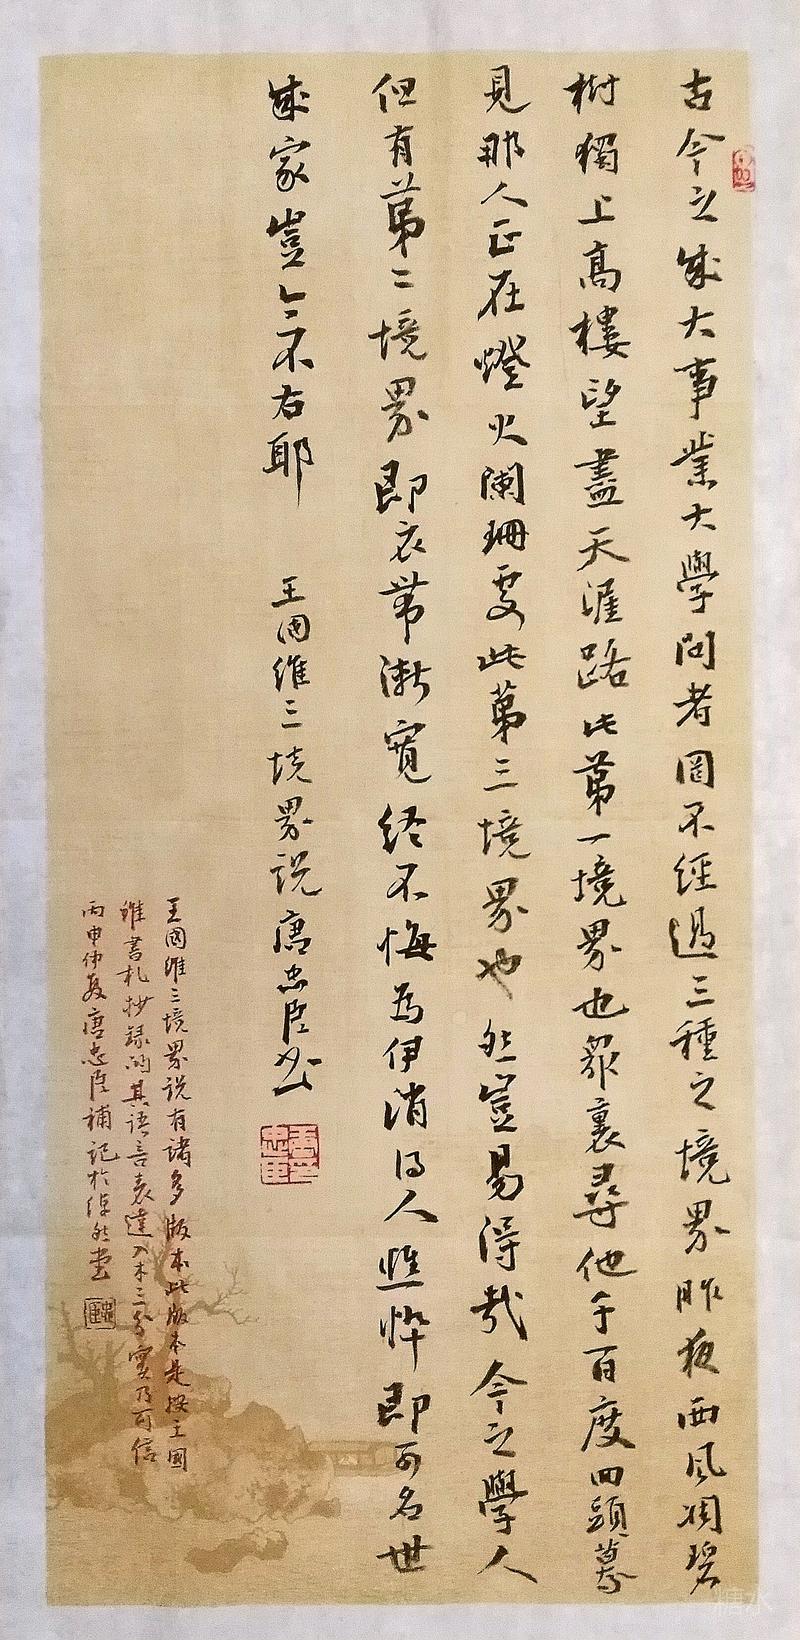 古今之成大事業大學問者罔不經過三種之境界昨夜西風凋碧
樹獨上高樓望盡天涯路此第一境界也眾裏尋他千百度回頭驀
見那人正在燈火闌珊處此第三境界也然豈易得哉今之學人
但有第二境界即衣帶漸寬終不悔為伊消得人憔悴即可名世
成家豈不右耶
王國維三境界說唐忠臣書
王國維三境界說有諸多版本此版本是按王國
維書札抄錄的其語言表達入木三分實乃可信
丙申仲夏唐忠臣補記於堂
糖水